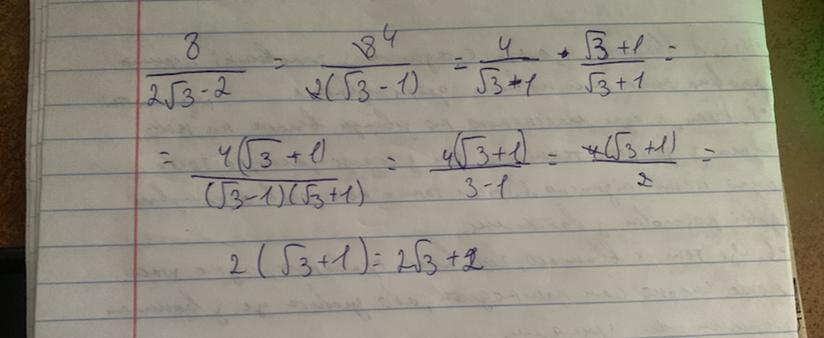 8/(2√3-2) = 8 4/(2(√3-1)) = 4/(√3-1) · (√3+1)/(√3+1) =
= 4(√3+1)/((√3-1)(√3+1)) = 4(√3+1)/(3-1) = 4(√3+1)/2 =
2(√3+1)=2√3+2